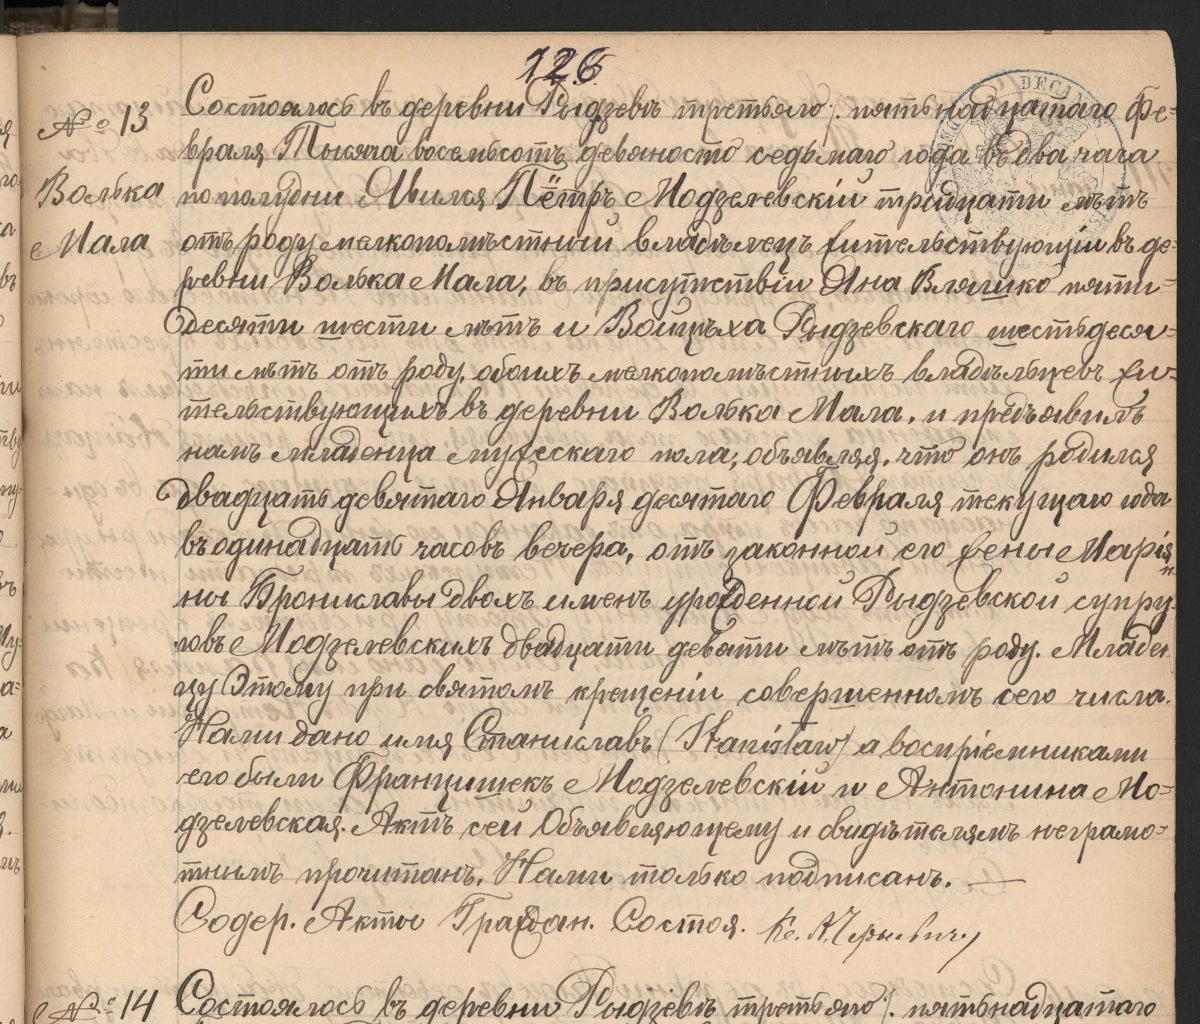 126
№ 13
Волька
Мала
Состоялось въ деревни Рыдзевѣ третьяго /: пятьнадцатаго Фе-
враля Тысяча восемьсотъ девяносто седьмаго года въ два часа
пополудни Явился Пётръ Модзелевскій тридцати лѣтъ
отъ роду мелкопомѣстный владѣлецъ жительствующій въ де-
ревни Волька Мала, въ присутствіи Яна Вляшко пяти-
десяти шести лѣтъ и Войцѣха Рыдзевскаго шестьдеся-
ти лѣтъ отъ роду, обоихъ мелкопомѣстныхъ владѣльцевъ жи-
тельствующихъ въ деревни Волька Мала, и предъявилъ
намъ младенца мужескаго пола, объявляя, что онъ родился
двадцать девятаго Января десятаго Февраля текущаго года
въ одинадцать часовъ вечера, отъ законной его жены Марiян
ны Брониславы двохъ именъ урожденной Рыдзевской супру
говъ Модзелевскихъ двадцати девяти лѣтъ отъ роду. Младен
цу Этому при святомъ крещеніи совершенномъ сего числа.
Нами дано имя Станиславъ (Stanisław) а воспріемниками
его были Францишекъ Модзелевскій и Антонина Мо-
дзелевская. Актъ сей Объявляющему и свидѣтелямъ неграмо-
тнымъ прочитанъ, Нами только подписанъ. —
Содер. Акты Граждан. Состоя. Кс. А.
№ 14
Состоялось въ деревни Рыдзевѣ третьяго /: пятьнадцатаго
DECAN